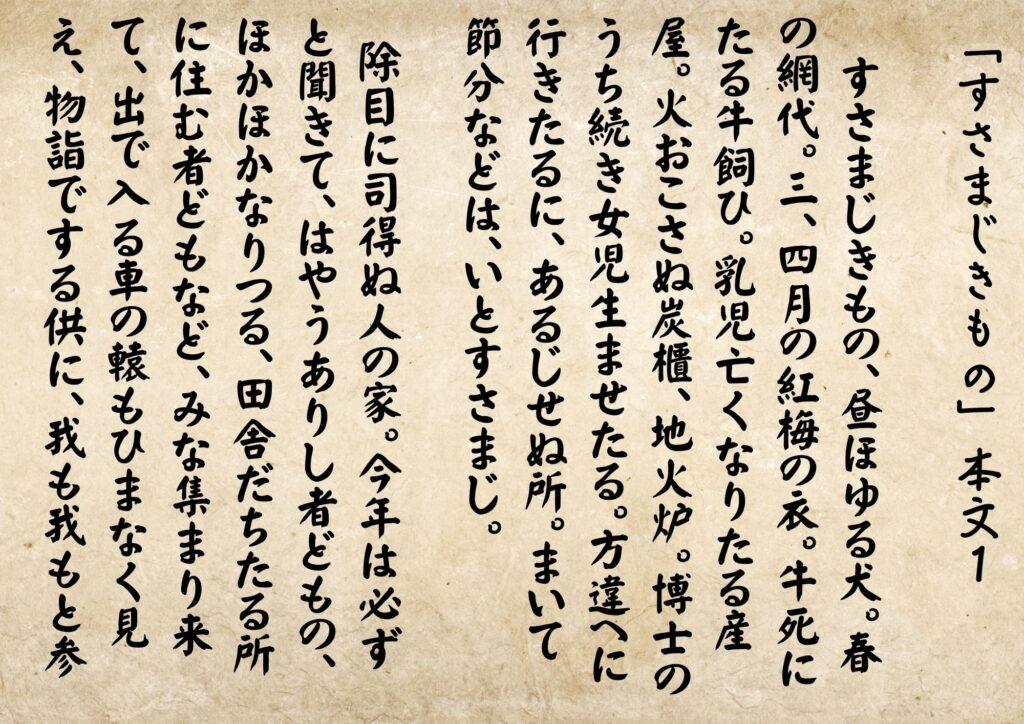 「すさまじきもの」本文１
すさまじきもの、昼ほゆる犬。春
の網代。三、四月の紅梅の衣。牛死に
たる牛飼ひ。乳児亡くなりたる産
屋。火おこさぬ炭櫃、地火炉。博士の
うち続き女児生ませたる。方違へに
行きたるに、あるじせぬ所。まいて
節分などは、いとすさまじ。
除目に司得ぬ人の家。今年は必ず
と聞きて、はやうありし者どもの、
ほかほかなりつる、田舎だちたる所
に住む者どもなど、みな集まり来
て、出で入る車の轅もひまなく見
え、物詣でする供に、我も我もと参